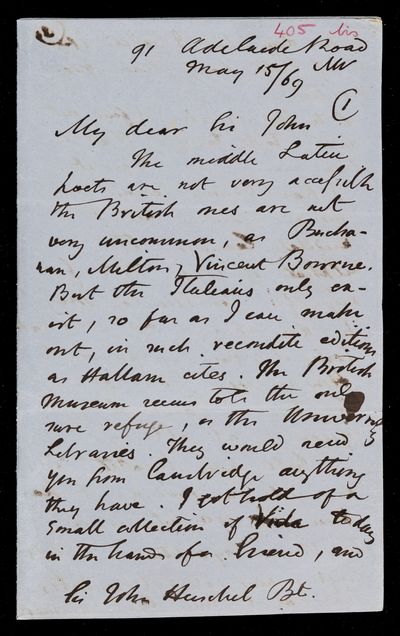 405 bis
91 Adelaide Road
May 15/69 NW
(1)
My dear Sir John
The middle Latin
poets are not very accessible
the British ones are not
very uncommon, as Bucha-
nan, Milton, Vincent Bourne.
But the Italians only ex-
ist, so far as I can make
out, in such recondite editions
as Hallam cites. The British
Museum seems to be the only
sure refuge, or the University
Libraries. They would send
you from Cambridge anything
they have. I got hold of a
small collection of Vida today
in the hands of a friend, and
Sir John Herschel Bt.